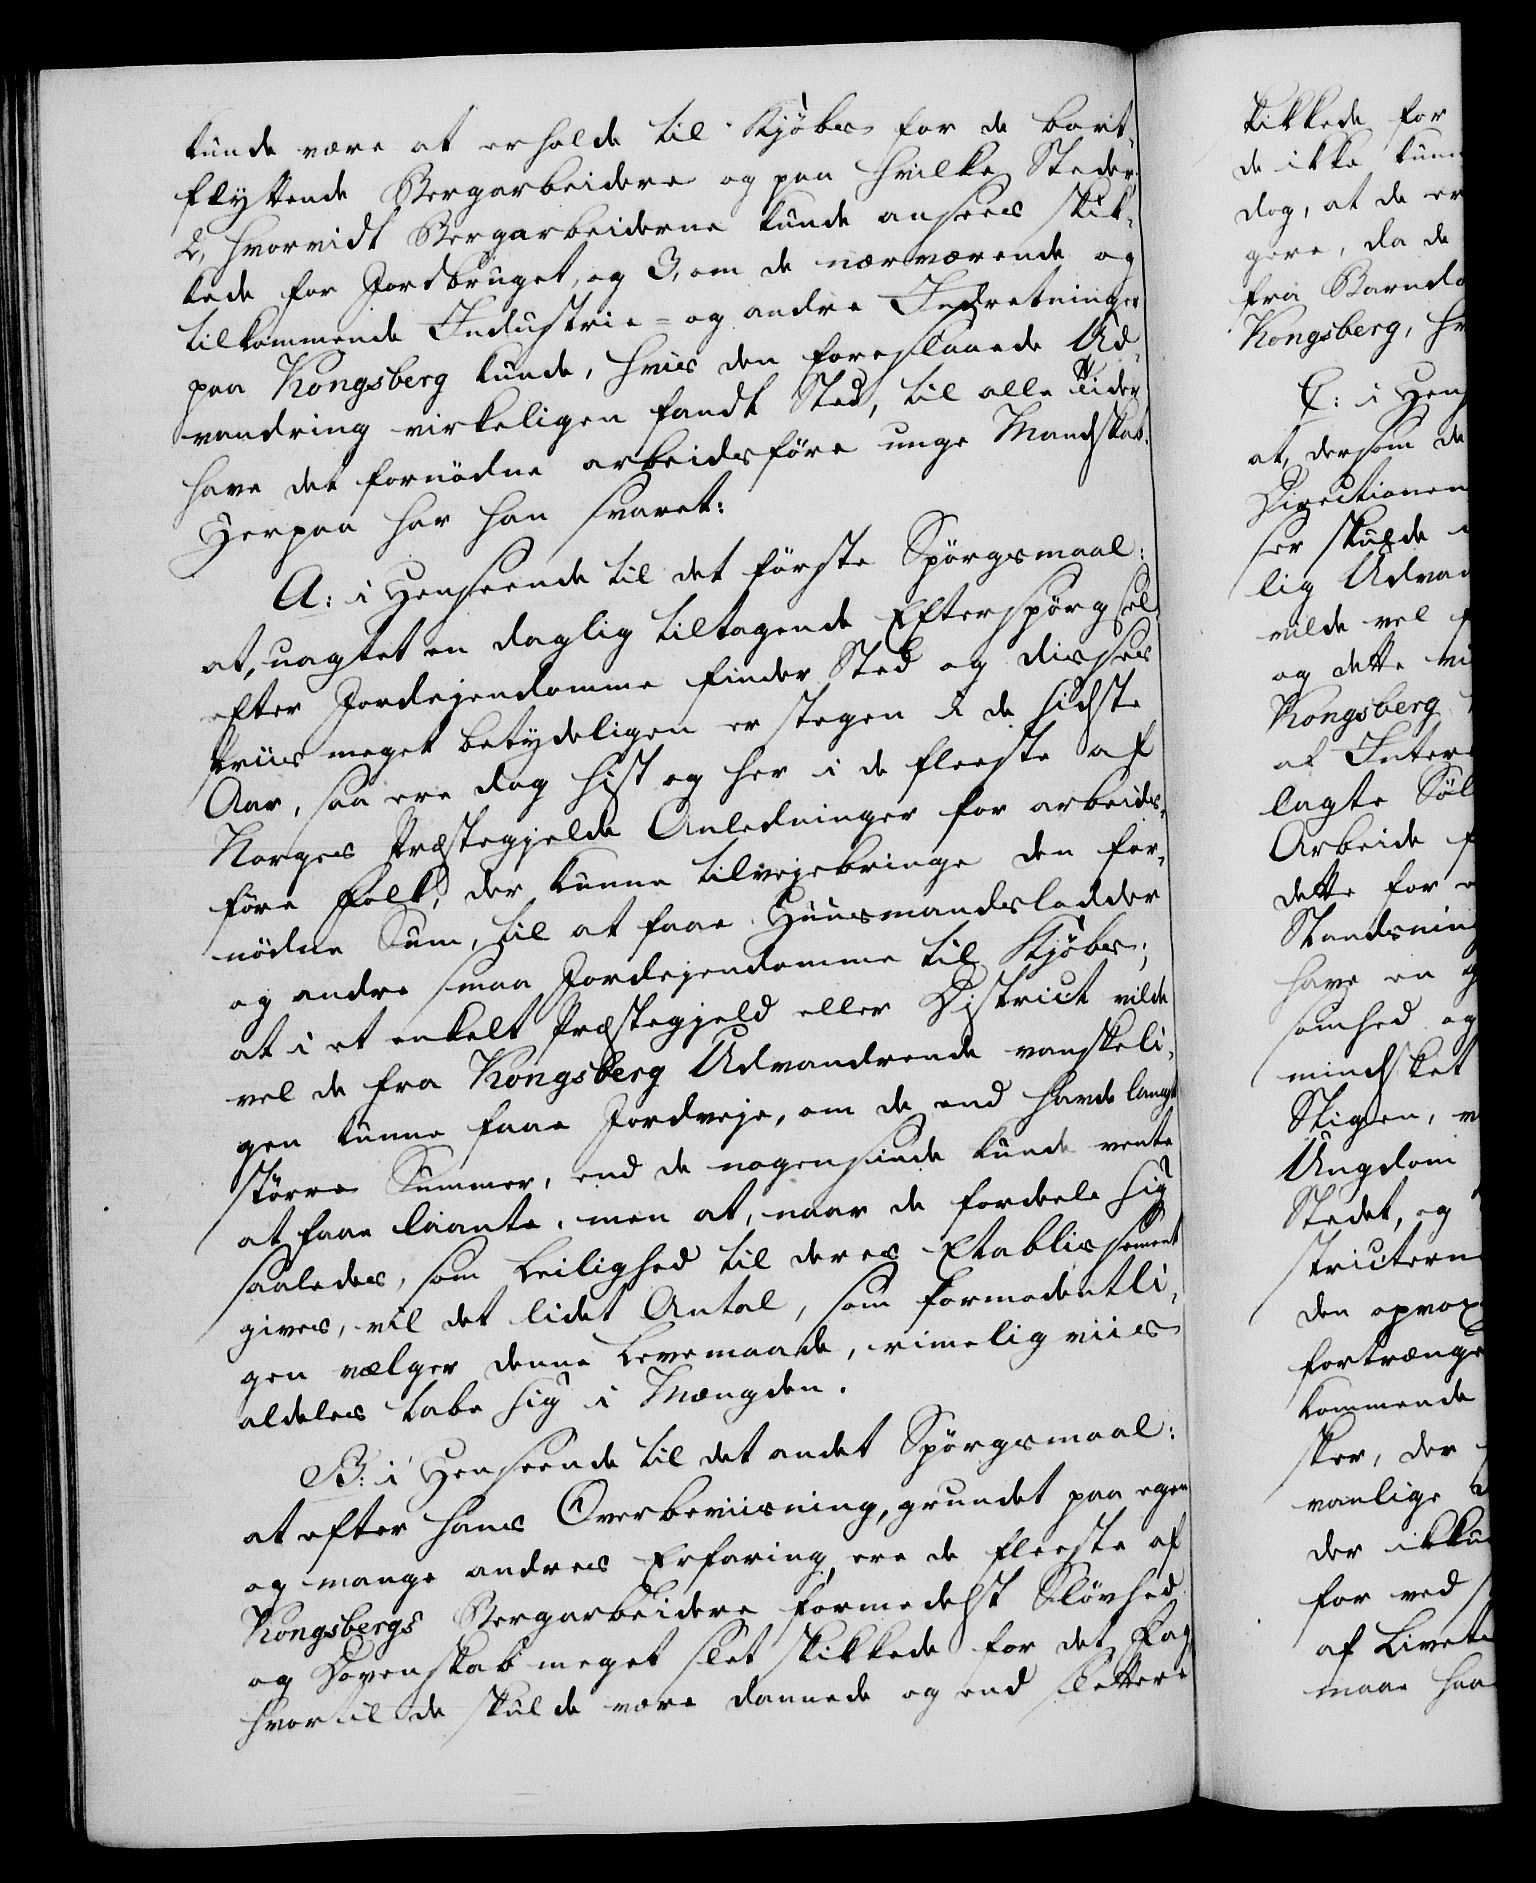 kunde være at erholde til Kjöbs for de bort-
flyttende Bergarbeidere og paa hvilke Steder
2, hvorvidt Bergarbeiderne kunde ansees skik-
kede for Jordbruget, og 3, om de nærværende og
tilkommende Industrie- og andre Indretninger
paa Kongsberg kunde, hvis den foreslaaede Ud-
vandring virkeligen fandt Sted, til alle Tider
have det fornödne arbeidsföre unge Mandskab.
Herpaa har han svaret:
A: i Henseende til det förste Spörgsmaal:
at, uagtet en daglig tiltagende Efterspörgsel
efter Jordejendomme finder Sted og disses
Priis meget betydeligen er stegen i de sidste
Aar, saa ere dog hist og her i de fleeste af
Norges Præstegjelde Anledninger for arbeids-
före Folk, der kunne tilvejebringe den for-
nödne Sum, til at faae Huusmandslodder
og andre smaa Jordejendomme til Kjöbs;
at i et enkelt Præstegjeld eller District vilde
vel de fra Kongsberg Udvandrende vanskeli-
gen kunne faae Jordveje, om de end havde langt
större Summer, end de nogensinde kunde vente
at faae laante, men at, naar de fordeele sig
saaledes, som Leilighed til deres Etablissement
gives, vil det lidet Antal, som formodentli-
gen vælger denne Levemaade, rimeligviis
aldeles tabe sig i Mængden.
B: i Henseende til det andet Spörgsmaal:
at efter hans Overbeviisning, grundet paa egen
og mange andres Erfaring, ere de fleeste af
Kongsbergs Bergarbeidere formedelst Slövhed
og Dovenskab meget slet skikkede for det Fag
hvortil de skulde være dannede og end slettere
skikkede for
de ikke kun
dog, at de er
gere, da de
fra Barndo
Kongsberg, hv
C: i Hens
at, dersom de
Directionen
ser skulde
lig Udvan
vilde vel
og dette
Kongsberg
af Inter
lagte Söl
Arbeide
dette for
Standsning
have en
somhed og
mindsket
Stigen,
Ungdom
Stedet, og
stricterne
den opvox
fortrænge
kommende
sker, der
vanlige
der ikku
for ved
af Livets
maae haa